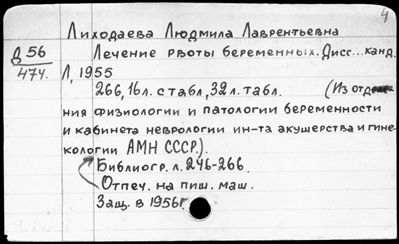 4
Лиходаева Людмила Лаврентьевна
Д 56
474.
Лечение рвоты беременных. Дисс... канд.
Л, 1955
266, 16 л. с табл, 32 л. табл. (Из отделе-
ния физиологии и патологии беременности
и кабинета неврологии ин-та акушерства и гине-
кологии АМН СССР).
Библиогр. л. 246-266.
Отпеч. на пиш. маш.
Защ. в 1956г.